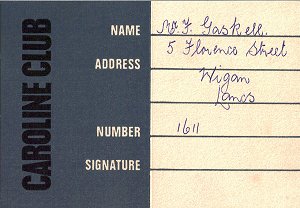 CAROLINE CLUB
NAME Mr. F. Gaskell.
ADDRESS 5 Florence Street
Wigan
Lancs
NUMBER 1611
SIGNATURE